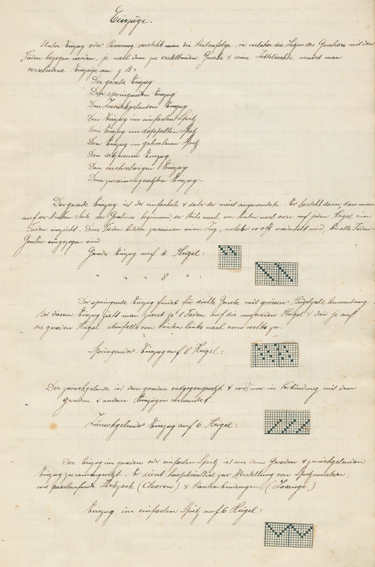 Einzüge.
Unter Einzug oder Passierung versteht man die Reihenfolge, in welcher die Litzen des Geschirrs mit den
Fäden bezogen werden, je nach dem zu erstellenden Gewebe & seine wendet man
verschiedene Einzüge an z B:
Der gerade Einzug
Den springenden Einzug
Den Zurückgehenden Einzug
Den Einzug im einfachen Spitz
Den Einzug im doppelten Spitz
Den Einzug im gebrochenen Spitz
Den Einzug
Den Einzug
Den Einzug.
Der gerade Einzug ist der einfachste & daher der meist angewendete. Er besteht darin dass man
auf der linken Seite des beginnend der Reihe nach von hinten nach vorn auf jeden Flügel ein
Faden einzieht. Diese Fäden bilden zusammen einen Zug, welcher so oft wiederholt wird, bis alle Fäden
eingezogen sind.
Gerader Einzug auf 4 Flügel:
" " " 8 "
Der springende Einzug findet für dichte Gewebe mit grösserer Flügelzahl Anwendung.
Bei diesem Einzug zieht man zuerst je 1 Faden auf die ungeraden Flügel & dann je auf
die geraden Flügel von links nach rechts zu.
Springender Einzug auf 6 Flügel:
Der zurückgehende ist dem geraden entgegengesetzt & wird nur in Verbindung mit dem
geraden & anderen Einzügen verwendet.
Zurückgehender Einzug auf 6 Flügel:
Der Einzug im geraden oder einfachen Spitz ist aus dem Geraden & zurückgehenden
Einzug zusammengesetzt. Er dient hauptsächlich zur Herstellung von Spitzmustern
wie Zickzack (Chevron) & (Losange)
Einzug im einfachen Spitz auf 6 Flügel: